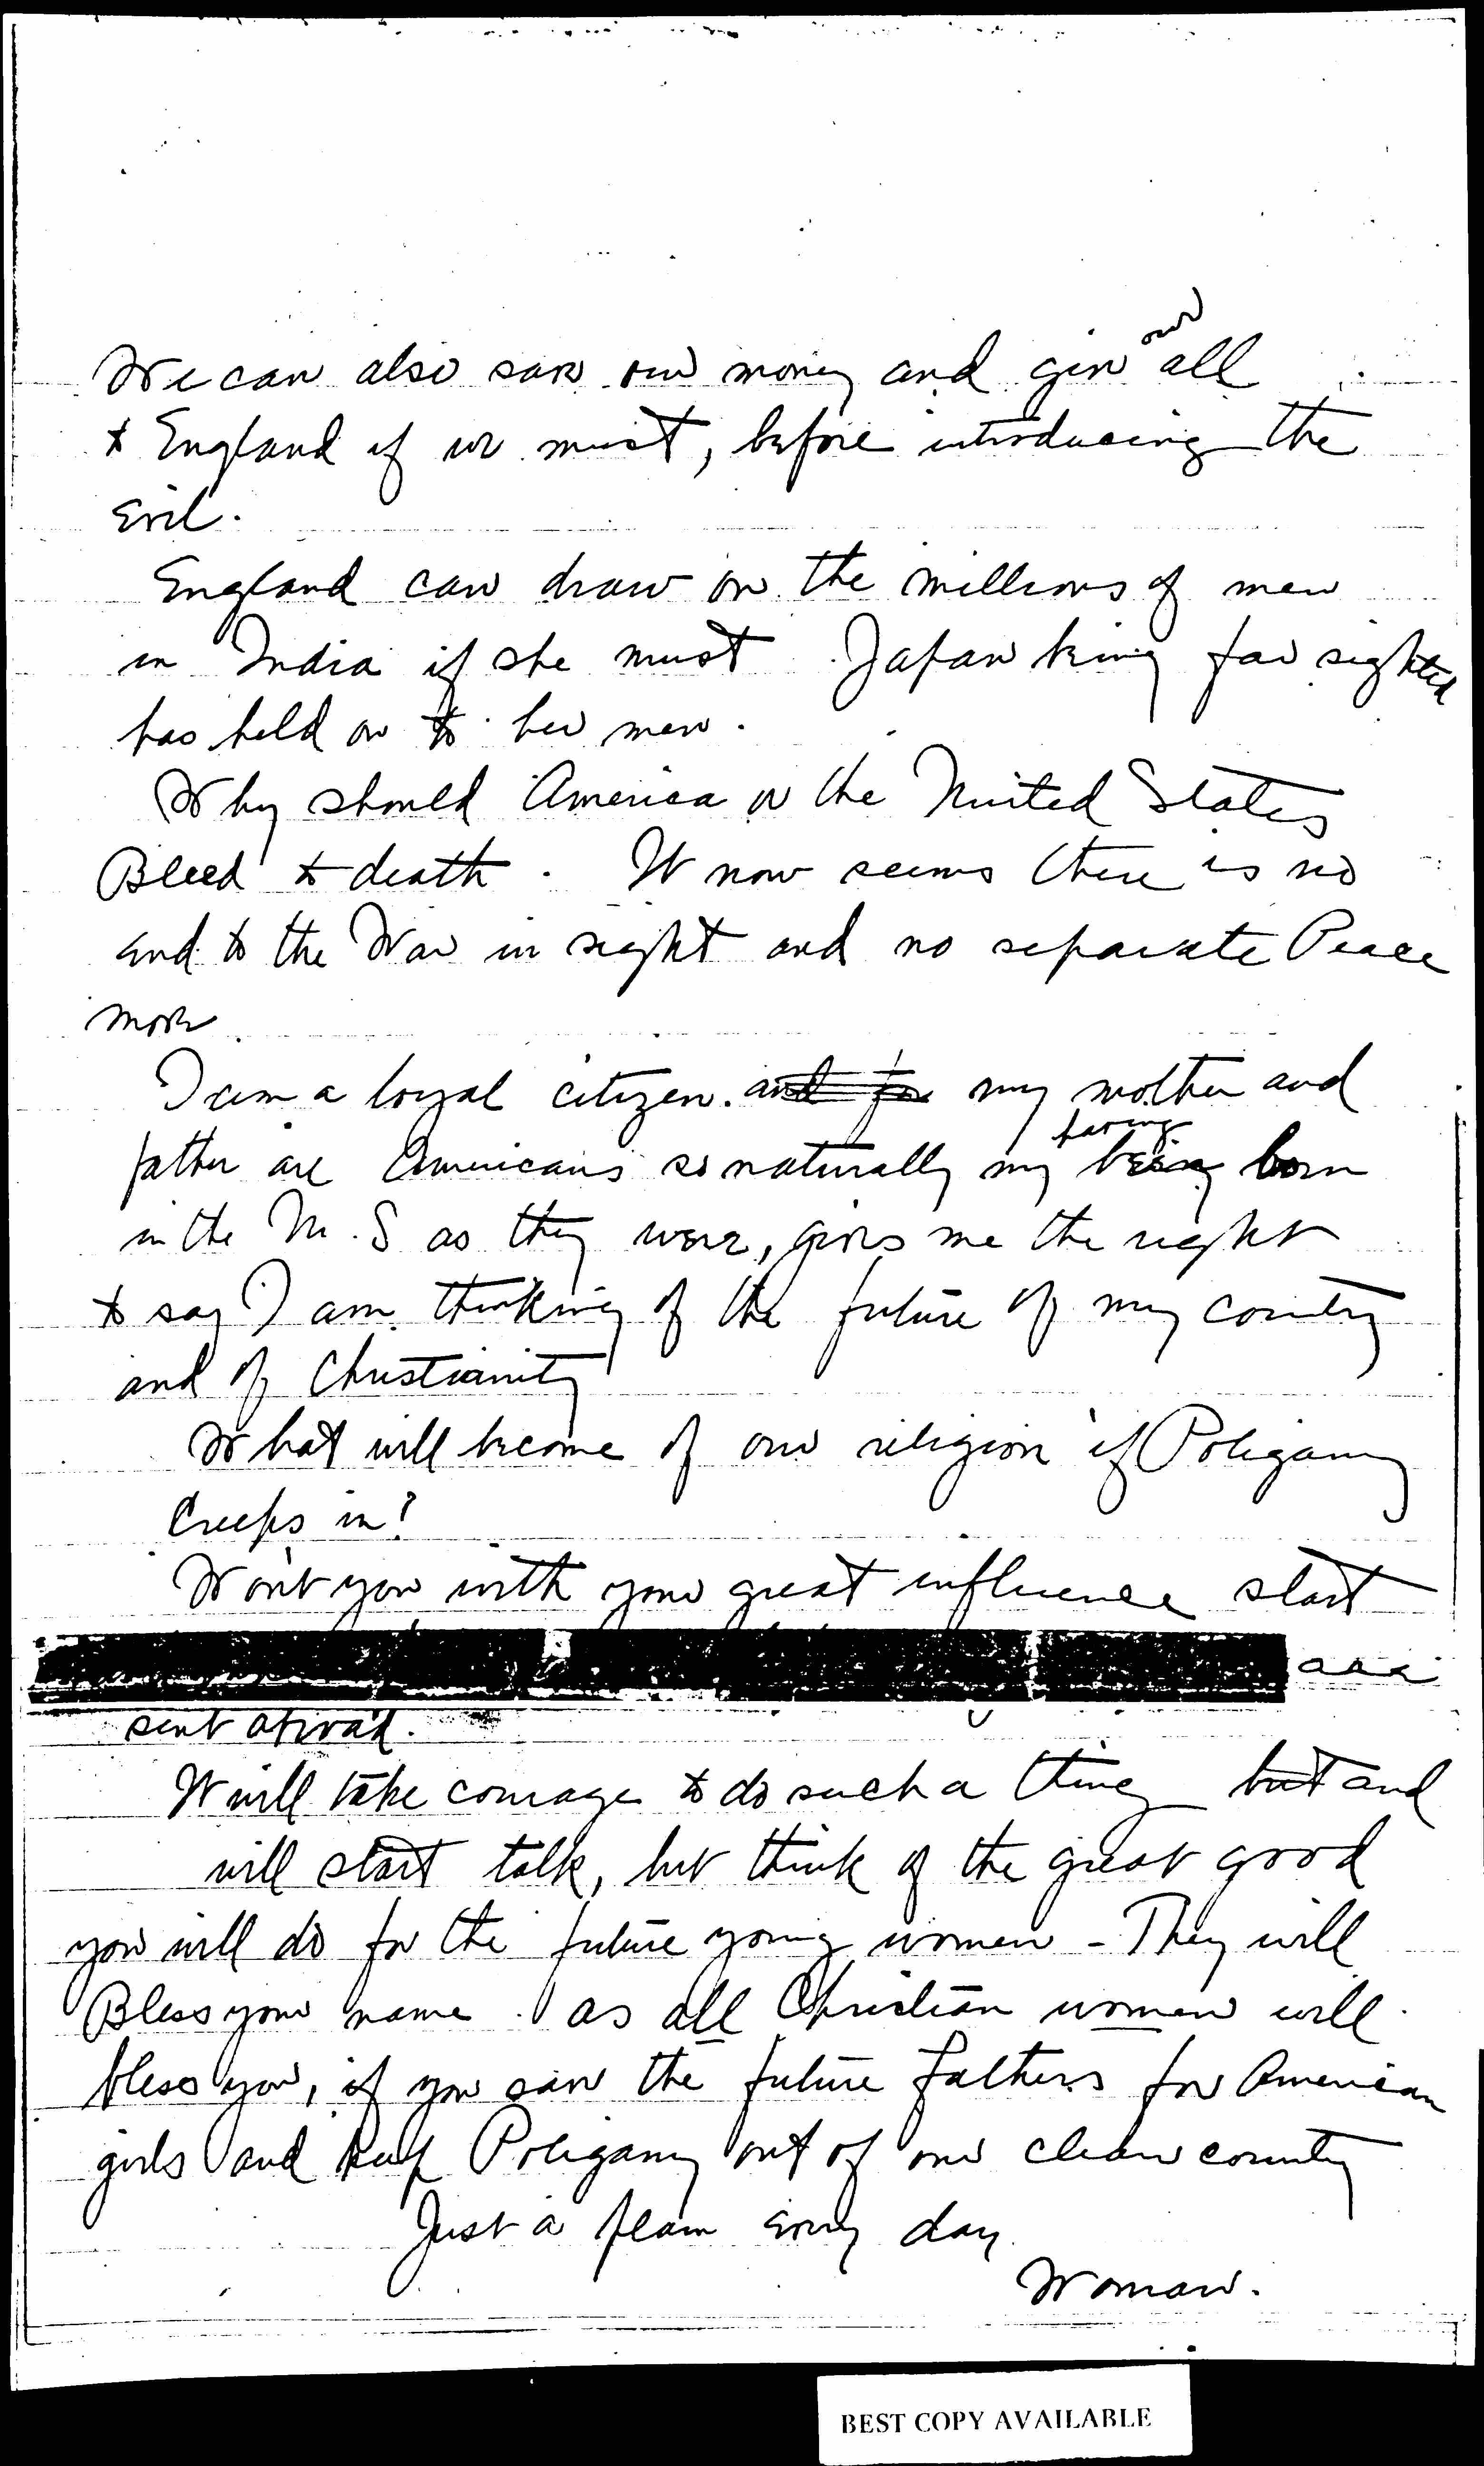 We can also save our money and give our all
to England if we must, before introducing the
Evil.
England can draw on the millions of men
in India if she must Japan being far sighted
has held on to her men.
Why should America or the United States
Bleed to death. It now seems there is no
end to the War in sight and no separate Peace
more
I am a loyal citizen. and for my mother and
father are Americans so naturally my having being born
in the U.S as they were, gives me the right
to say I am thinking of the future of my country
and of Christianity
What will become of our religion if Poligamy
Creeps in?
Wont you with your great influence start
sent abroad.
It will take courage to do such a thing but and
will start talk, but think of the great good
you will do for the future young women - They will
Bless your name. as all Christian women will
bless you, if you save the future fathers for American
girls and keep Poligamy out of our clean country
Just a plain every day
Woman.
BEST COPY AVAILABLE